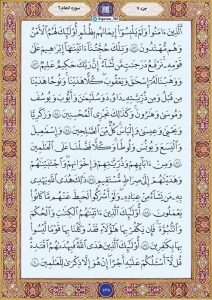 جزء ٧
سورة الانعام ٦
@Hipnoose_101
ٱلَّذِينَ ءَامَنُوا۟ وَلَمْ يَلْبِسُوٓا۟ إِيمَـٰنَهُم بِظُلْمٍ أُو۟لَـٰٓئِكَ لَهُمُ ٱلْأَمْنُ
وَهُم مُّهْتَدُونَ ٨٢ وَتِلْكَ حُجَّتُنَآ ءَاتَيْنَـٰهَآ إِبْرَٰهِيمَ عَلَىٰ
قَوْمِهِۦ نَرْفَعُ دَرَجَـٰتٍ مَّن نَّشَآءُ إِنَّ رَبَّكَ حَكِيمٌ عَلِيمٌ ٨٣
وَوَهَبْنَا لَهُۥٓ إِسْحَـٰقَ وَيَعْقُوبَ كُلًّا هَدَيْنَا وَنُوحًا هَدَيْنَا
مِن قَبْلُ وَمِن ذُرِّيَّتِهِۦ دَاوُۥدَ وَسُلَيْمَـٰنَ وَأَيُّوبَ وَيُوسُفَ
وَمُوسَىٰ وَهَـٰرُونَ وَكَذَٰلِكَ نَجْزِى ٱلْمُحْسِنِينَ ٨٤ وَزَكَرِيَّا
وَيَحْيَىٰ وَعِيسَىٰ وَإِلْيَاسَ كُلٌّ مِّنَ ٱلصَّـٰلِحِينَ ٨٥ وَإِسْمَـٰعِيلَ
وَٱلْيَسَعَ وَيُونُسَ وَلُوطًا وَكُلًّا فَضَّلْنَا عَلَى ٱلْعَـٰلَمِينَ
٨٦ وَمِنْ ءَابَآئِهِمْ وَذُرِّيَّـٰتِهِمْ وَإِخْوَٰنِهِمْ وَٱجْتَبَيْنَـٰهُمْ
وَهَدَيْنَـٰهُمْ إِلَىٰ صِرَٰطٍ مُّسْتَقِيمٍ ٨٧ ذَٰلِكَ هُدَى ٱللَّهِ يَهْدِى
بِهِۦ مَن يَشَآءُ مِنْ عِبَادِهِۦ وَلَوْ أَشْرَكُوا۟ لَحَبِطَ عَنْهُم مَّا كَانُوا۟
يَعْمَلُونَ ٨٨ أُو۟لَـٰٓئِكَ ٱلَّذِينَ ءَاتَيْنَـٰهُمُ ٱلْكِتَـٰبَ وَٱلْحُكْمَ
وَٱلنُّبُوَّةَ فَإِن يَكْفُرْ بِهَا هَـٰٓؤُلَآءِ فَقَدْ وَكَّلْنَا بِهَا قَوْمًا لَّيْسُوا۟
بِهَا بِكَـٰفِرِينَ ٨٩ أُو۟لَـٰٓئِكَ ٱلَّذِينَ هَدَى ٱللَّهُ فَبِهُدَىٰهُمُ ٱقْتَدِهْ
قُل لَّآ أَسْـَٔلُكُمْ عَلَيْهِ أَجْرًا إِنْ هُوَ إِلَّا ذِكْرَىٰ لِلْعَـٰلَمِينَ ٩٠
١٣٨